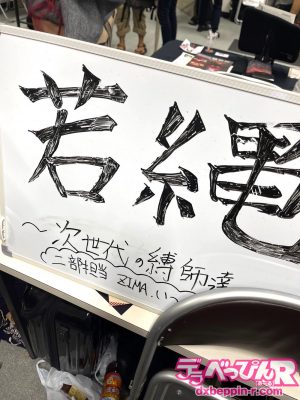 若縄
～次世代の縛師達
二部担当 ZIMA.い～
デラべっぴんR
dzbeppin-r.com